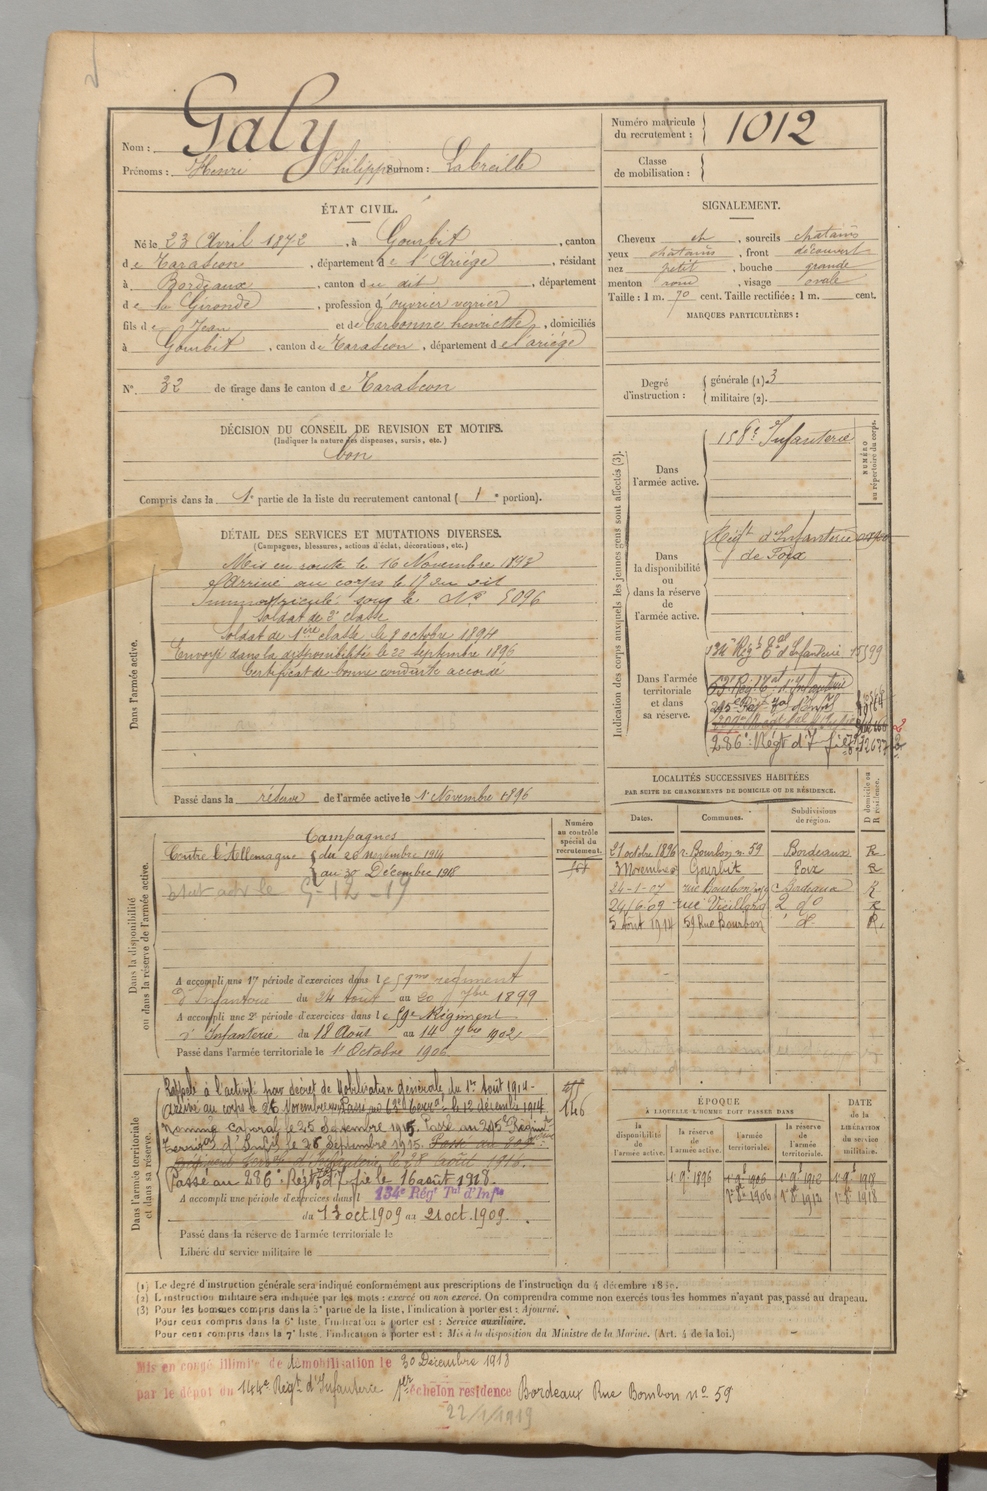 Nom : Galy
Prénoms : Henri Philippe Surnom : Labreille
Numéro matricule du recrutement : 1012
Classe de mobilisation :
ÉTAT CIVIL.
Né le 23 Avril 1872, à Gourbit, canton
de Tarascon, département de l'Ariège, résidant
à Bordeaux, canton du dit, département
de la Gironde, profession d'ouvrier verrier
fils de Jean et de Carbonne henriette, domiciliés
à Gourbit, canton de Tarascon, département de l'ariège
N° 32 de tirage dans le canton de Tarascon
SIGNALEMENT.
Cheveux ch, sourcils chatains
yeux chatains, front découvert
nez petit, bouche grande
menton rond, visage ovale
Taille : 1 m. 70 cent. Taille rectifiée : 1 m. cent.
MARQUES PARTICULIÈRES :
Degré d'instruction : générale (1). 3
militaire (2).
DÉCISION DU CONSEIL DE REVISION ET MOTIFS.
(Indiquer la nature des dispenses, sursis, etc.)
bon
Compris dans la 1e partie de la liste du recrutement cantonal ( 1e portion).
DÉTAIL DES SERVICES ET MUTATIONS DIVERSES.
(Campagnes, blessures, actions d'éclat, décorations, etc.)
Dans l'armée active.
Mis en route le 16 Novembre 1893
Arrivé au corps le 17 du dit
Immatriculé sous le N° 5096
Soldat de 2e classe
Soldat de 1ère classe le 8 octobre 1894
Envoyé dans la disponibilité le 22 septembre 1896
Certificat de bonne conduite accordé
Passé dans la réserve de l'armée active le 1 Novembre 1896
Indication des corps auxquels les jeunes gens sont affectés (3).
NUMÉRO au répertoire du corps.
Dans l'armée active.
158e Infanterie
Dans la disponibilité ou dans la réserve de l'armée active.
Régt d'Infanterie
de Foix
Dans l'armée territoriale et dans sa réserve.
134e Régt Tal d'Infanterie
286e Régt d'Ifie
LOCALITÉS SUCCESSIVES HABITÉES
PAR SUITE DE CHANGEMENTS DE DOMICILE OU DE RÉSIDENCE.
D domicile ou R résidence.
Dates. Communes. Subdivisions de région.
21 octobre 1896 r. Bourbon n. 59 Bordeaux R
3 Novembre Gourbit Foix R
24-1-07 rue Bourbon Bordeaux R
24/6-09 rue Vieillard 2 do R
5 Août 1914 59 Rue Bourbon d° R.
Dans la disponibilité ou dans la réserve de l'armée active.
Numéro au contrôle spécial du recrutement.
Campagnes
Contre l'Allemagne du 26 novembre 1914
au 30 Décembre 1918
A accompli une 1re période d'exercices dans le 59me régiment
d'Infanterie du 24 Août au 20 7bre 1899
A accompli une 2e période d'exercices dans le 59e Régiment
d'Infanterie du 18 Août au 14 7bre 1902
Passé dans l'armée territoriale le 1er Octobre 1906
Dans l'armée territoriale et dans sa réserve.
Rappelé à l'activité par décret de Mobilisation générale du 1er Août 1914.
Arrivé au corps le 26 Novembre Passé au 63e Terral le 12 décembre 1914
Nommé caporal le 25 Septembre 1915. Passé au 295e Régiment
Territal d'Inf. le 26 Septembre 1915.
Passé au 286e Régt d'Ifie le 16 août 1918.
A accompli une période d'exercices dans l 134e Régt Tal d'Infie
du 13 oct. 1909 au 21 oct. 1909.
Passé dans la réserve de l'armée territoriale le
Libéré du service militaire le
146
ÉPOQUE
À LAQUELLE L'HOMME DOIT PASSER DANS
la disponibilité de l'armée active. la réserve de l'armée active. l'armée territoriale. la réserve de l'armée territoriale.
DATE de la LIBÉRATION du service militaire.
1er 9e 1896 1er 9e 1906 1er 9e 1912 1er 9e 1918
1er 8e 1906 1er 8e 1912 1er 8e 1918
(1) Le degré d'instruction générale sera indiqué conformément aux prescriptions de l'instruction du 4 décembre 1889.
(2) L'instruction militaire sera indiquée par les mots : exercé ou non exercé. On comprendra comme non exercés tous les hommes n'ayant pas passé au drapeau.
(3) Pour les hommes compris dans la 5e partie de la liste, l'indication à porter est : Ajourné.
Pour ceux compris dans la 6e liste, l'indication à porter est : Service auxiliaire.
Pour ceux compris dans la 7e liste, l'indication à porter est : Mis à la disposition du Ministre de la Marine. (Art. 4 de la loi.)
Mis en congé illimité de démobilisation le 30 Décembre 1918
par le dépôt du 144e Régt d'Infanterie 1er échelon résidence Bordeaux Rue Bourbon n° 59
22/1/1919